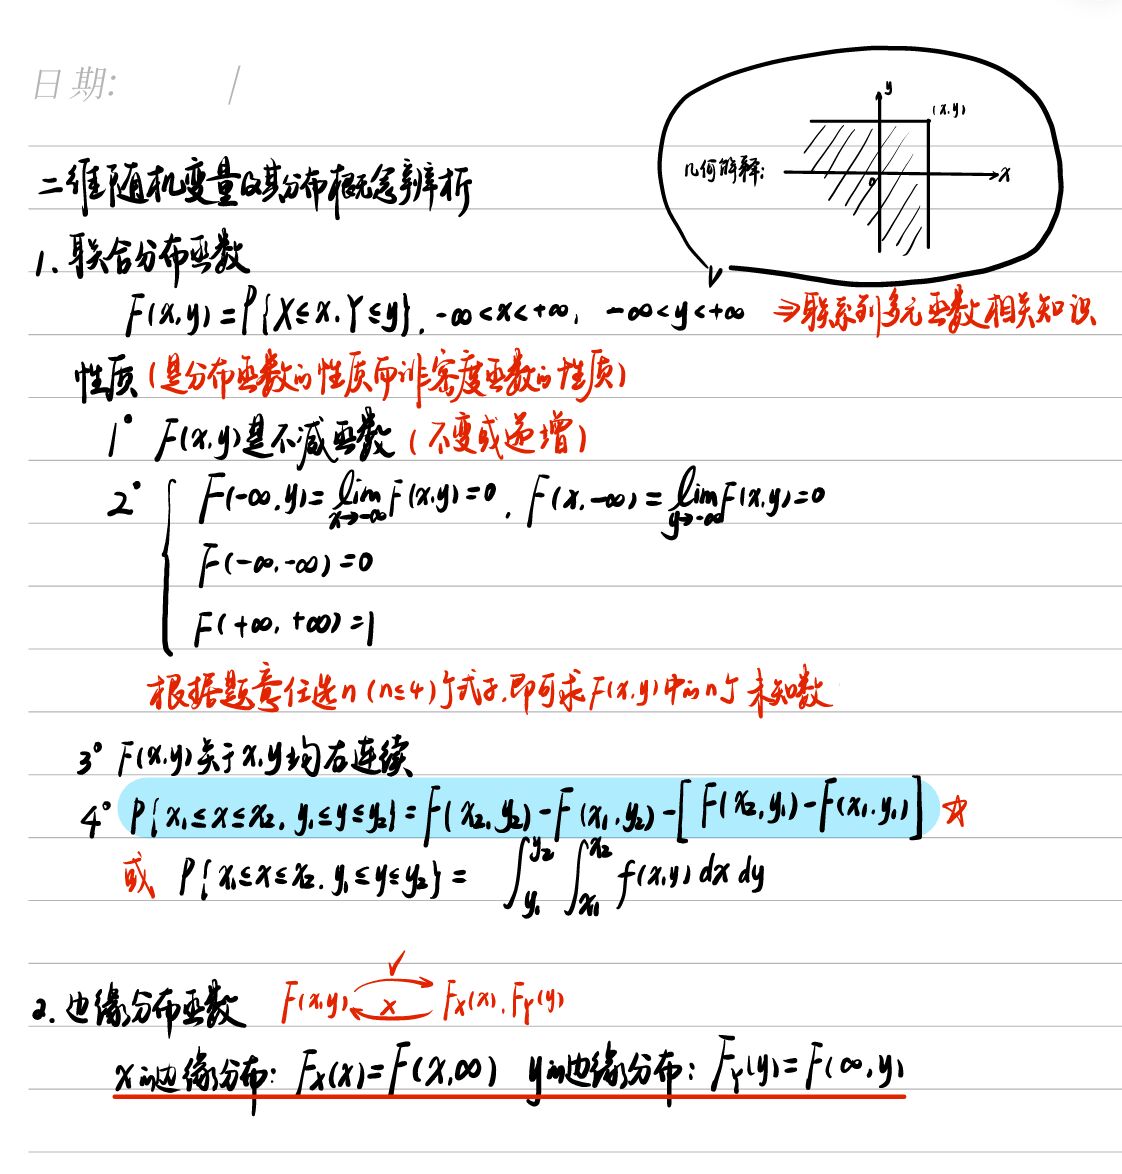 日期: /
y
(x,y)
几何解释:
x
0
二维随机变量及其分布概念辨析
1. 联合分布函数
F(x,y)=P{X≤x,Y≤y}, -∞<x<+∞, -∞<y<+∞ ⇒联系到多元函数相关知识
性质(是分布函数的性质而非密度函数的性质)
1° F(x,y)是不减函数(不变或递增)
2° { F(-∞,y)=lim x→-∞ F(x,y)=0, F(x,-∞)=lim y→-∞ F(x,y)=0
F(-∞,-∞)=0
F(+∞,+∞)=1
根据题意任选n(n≤4)个式子,即可求F(x,y)中的n个未知数
3° F(x,y)关于x,y均右连续
4° P{x₁≤x≤x₂, y₁≤y≤y₂}=F(x₂,y₂)-F(x₁,y₂)-[F(x₂,y₁)-F(x₁,y₁)] ☆
或 P{x₁≤x≤x₂, y₁≤y≤y₂}= ∫y₁^y₂ ∫x₁^x₂ f(x,y) dx dy
2. 边缘分布函数 F(x,y) ✓ × Fx(x), FY(y)
x的边缘分布: Fx(x)=F(x,∞) y的边缘分布: FY(y)=F(∞,y)